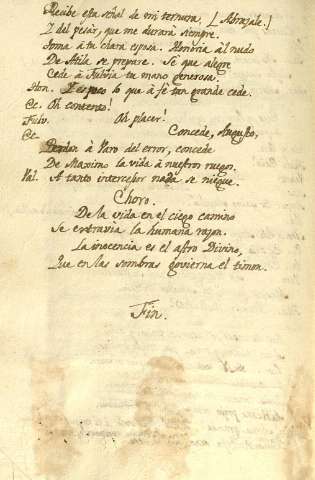 Recibe esta señal de mi ternura, [Abrazale.]
I del pesàr, que me durarà siempre.
Toma à tu chara esposa. Honoria àl nudo
De Atila se prepare. Sè que alegre
Cede à Fulvia tu mano generosa.
Hon. lo que à fè tan grande cede.
Ec. Oh contento!
Fulv. Oh placer!
Ec. Concede, Augusto,
à Varo del error, concede
De Maximo la vida à nuestros ruegos.
Val. A tanto intercesòr nada se niegue.
Choro.
De la vida en el ciego camino
Se extravia la humana razon.
La inocencia es el astro Divino,
Que en las sombras govierna el timon.
Fin.